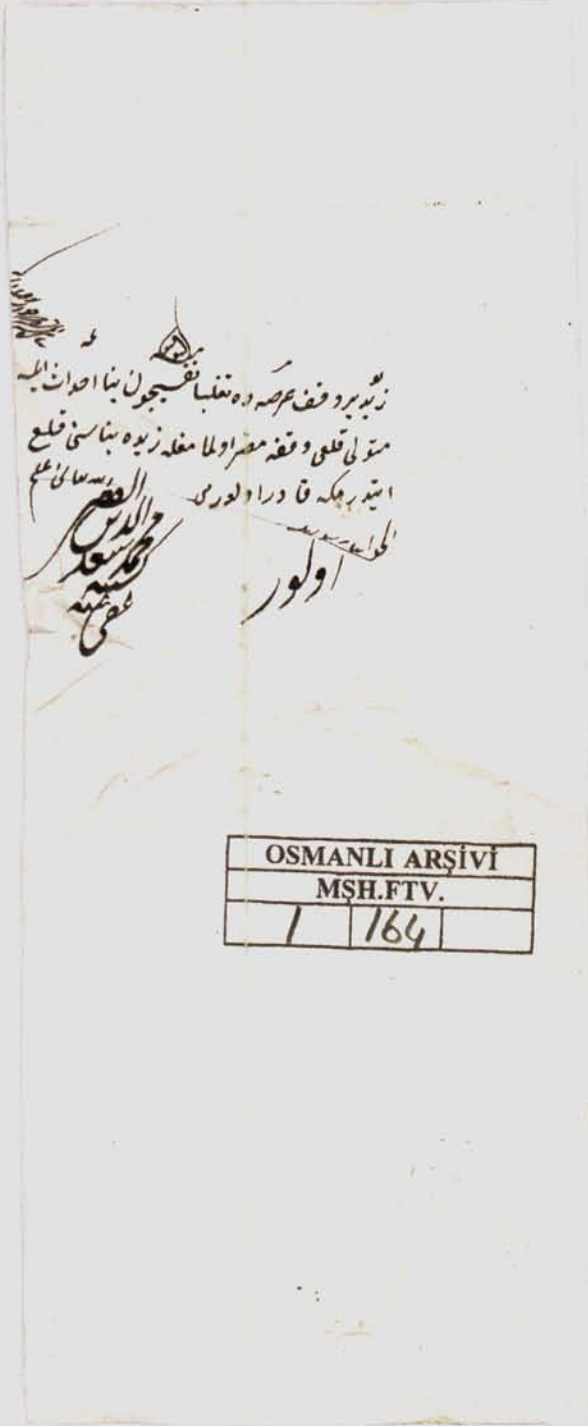 زید بر وقف عرصه ده تغلبا نفسیچون بنا احداث ایلسه
متولی قلعی وقفه مضر اولمامغله زیده بناسنی قلع
ایتدرمکه قادر اولورمی
الجواب
الله تعالی اعلم
اولور
الفقیر
محمد سعد الدین
عفی عنه
OSMANLI ARŞİVİ
MŞH.FTV.
1 164